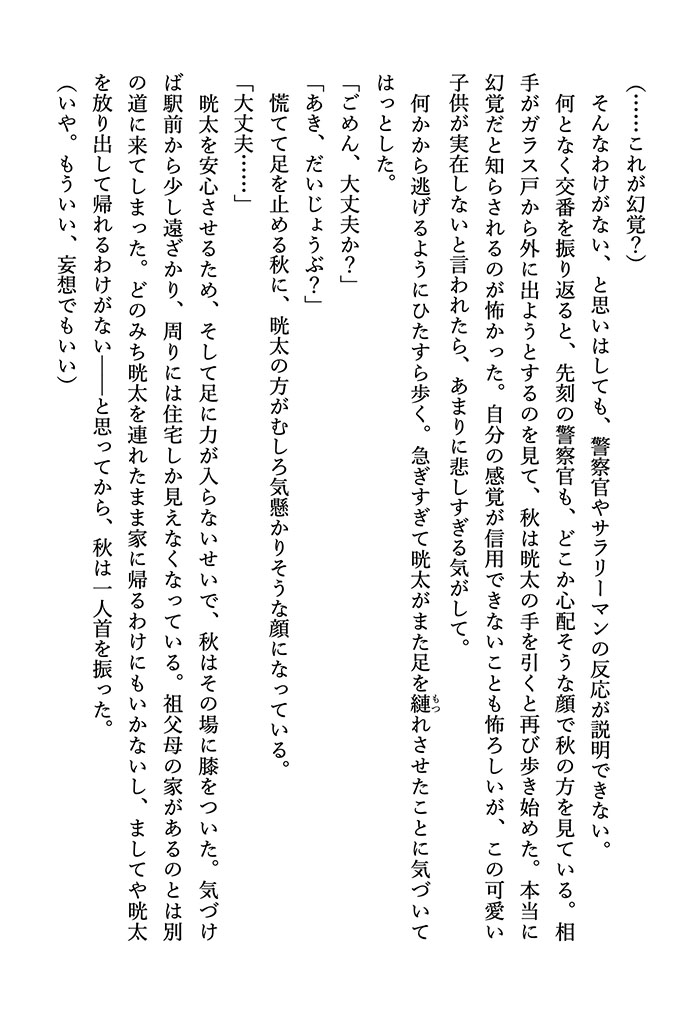 （……これが幻覚？）
　そんなわけがない、と思いはしても、警察官やサラリーマンの反応が説明できない。
　何となく交番を振り返ると、先刻の警察官も、どこか心配そうな顔で秋の方を見ている。相
手がガラス戸から外に出ようとするのを見て、秋は晄太の手を引くと再び歩き始めた。本当に
幻覚だと知らされるのが怖かった。自分の感覚が信用できないことも怖ろしいが、この可愛い
子供が実在しないと言われたら、あまりに悲しすぎる気がして。
　何かから逃げるようにひたすら歩く。急ぎすぎて晄太がまた足を縺もつれさせたことに気づいて
はっとした。
「ごめん、大丈夫か？」
「あき、だいじょうぶ？」
　慌てて足を止める秋に、晄太の方がむしろ気懸かりそうな顔になっている。
「大丈夫……」
　晄太を安心させるため、そして足に力が入らないせいで、秋はその場に膝をついた。気づけ
ば駅前から少し遠ざかり、周りには住宅しか見えなくなっている。祖父母の家があるのとは別
の道に来てしまった。どのみち晄太を連れたまま家に帰るわけにもいかないし、ましてや晄太
を放り出して帰れるわけがない――と思ってから、秋は一人首を振った。
（いや。もういい、妄想でもいい）